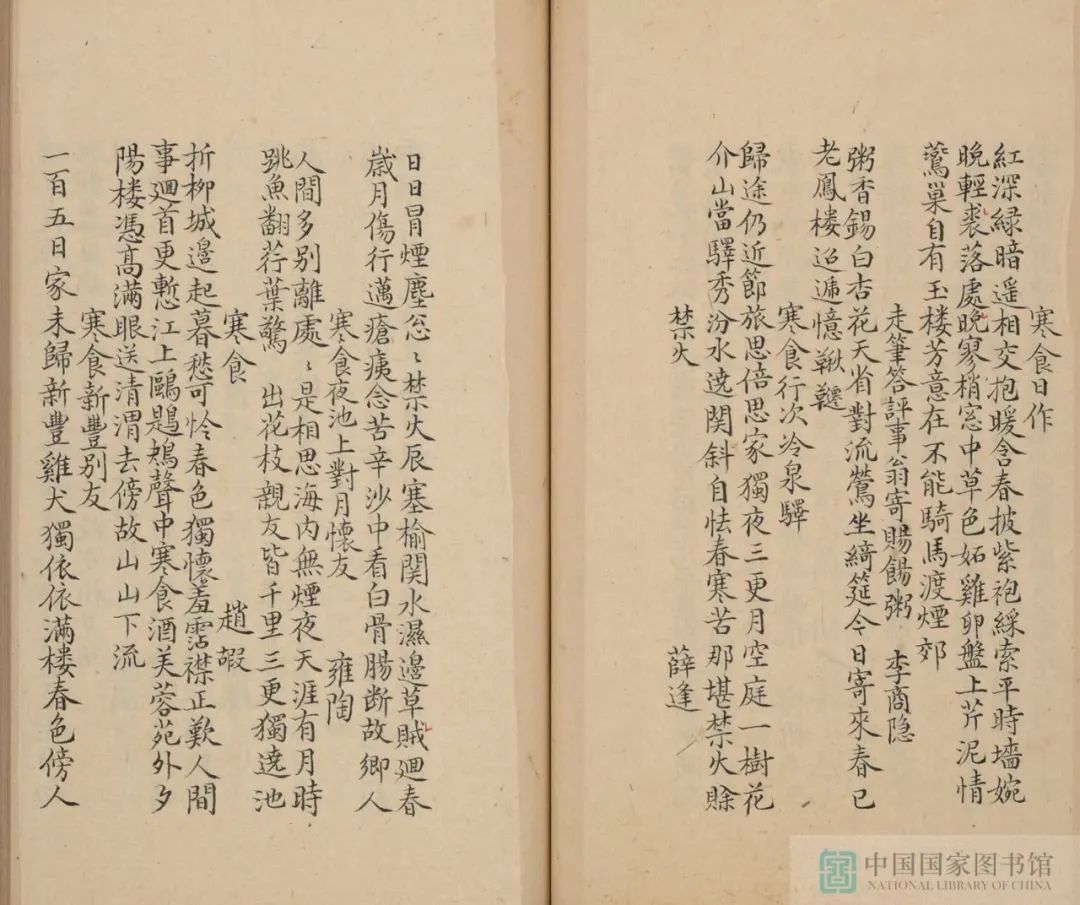 寒食日作
紅深緑暗遥相交抱暖含春披紫袍綵索平時墻婉
晚輕裘落處晚寥梢窓中草色妬雞卵盤上芹泥情
鷰巢自有玉楼芳意在不能騎馬渡煙郊
走筆答評事翁寄賜餳粥 李商隐
粥香錫白杏花天省對流鶯坐綺筵今日寄來春已
老鳳楼迢逓憶鞦韆
寒食行次冷泉驛
歸途仍近節旅思倍思家獨夜三更月空庭一樹花
介山當驛秀汾水遶関斜自怯春寒苦那堪禁火賖
禁火 薛逢
日日冒煙塵忩〻禁火辰塞榆関水濕邊草賊廽春
歳月傷行邁瘡痍念苦辛沙中看白骨腸断故鄉人
寒食夜池上對月懷友 雍陶
人間多别離處〻是相思海内無煙夜天涯有月時
跳魚翻荇葉驚 出花枝親友皆千里三更獨遶池
寒食 趙嘏
折柳城邊起暮愁可怜春色獨懷羞霑襟正歎人間
事廽首更慙江上鷗鶗鴂聲中寒食酒美蓉苑外夕
陽楼憑髙滿眼送清渭去傍故山山下流
寒食新豐别友
一百五日家未歸新豐雞犬獨依依滿楼春色傍人
中国国家图书馆
NATIONAL LIBRARY OF CHINA